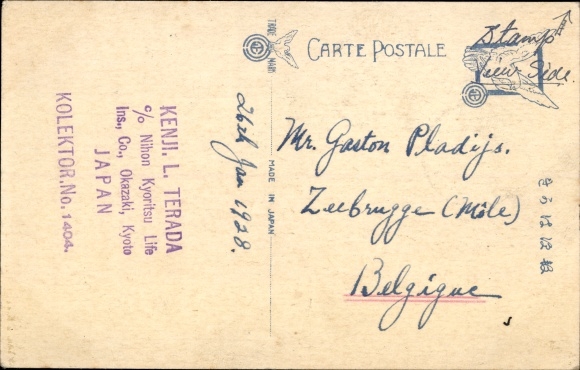 TRADE MARK
CARTE POSTALE
Stamp
View Side.
KENJI. L. TERADA
c/o Nihon Kyoritsu Life
Ins., Co., Okazaki, Kyoto
JAPAN
KOLEKTOR.No. 1404.
26th Jan 1928.
MADE IN JAPAN
Mr. Gaston Pladijs.
Zeebrugge (Môle)
Belgique